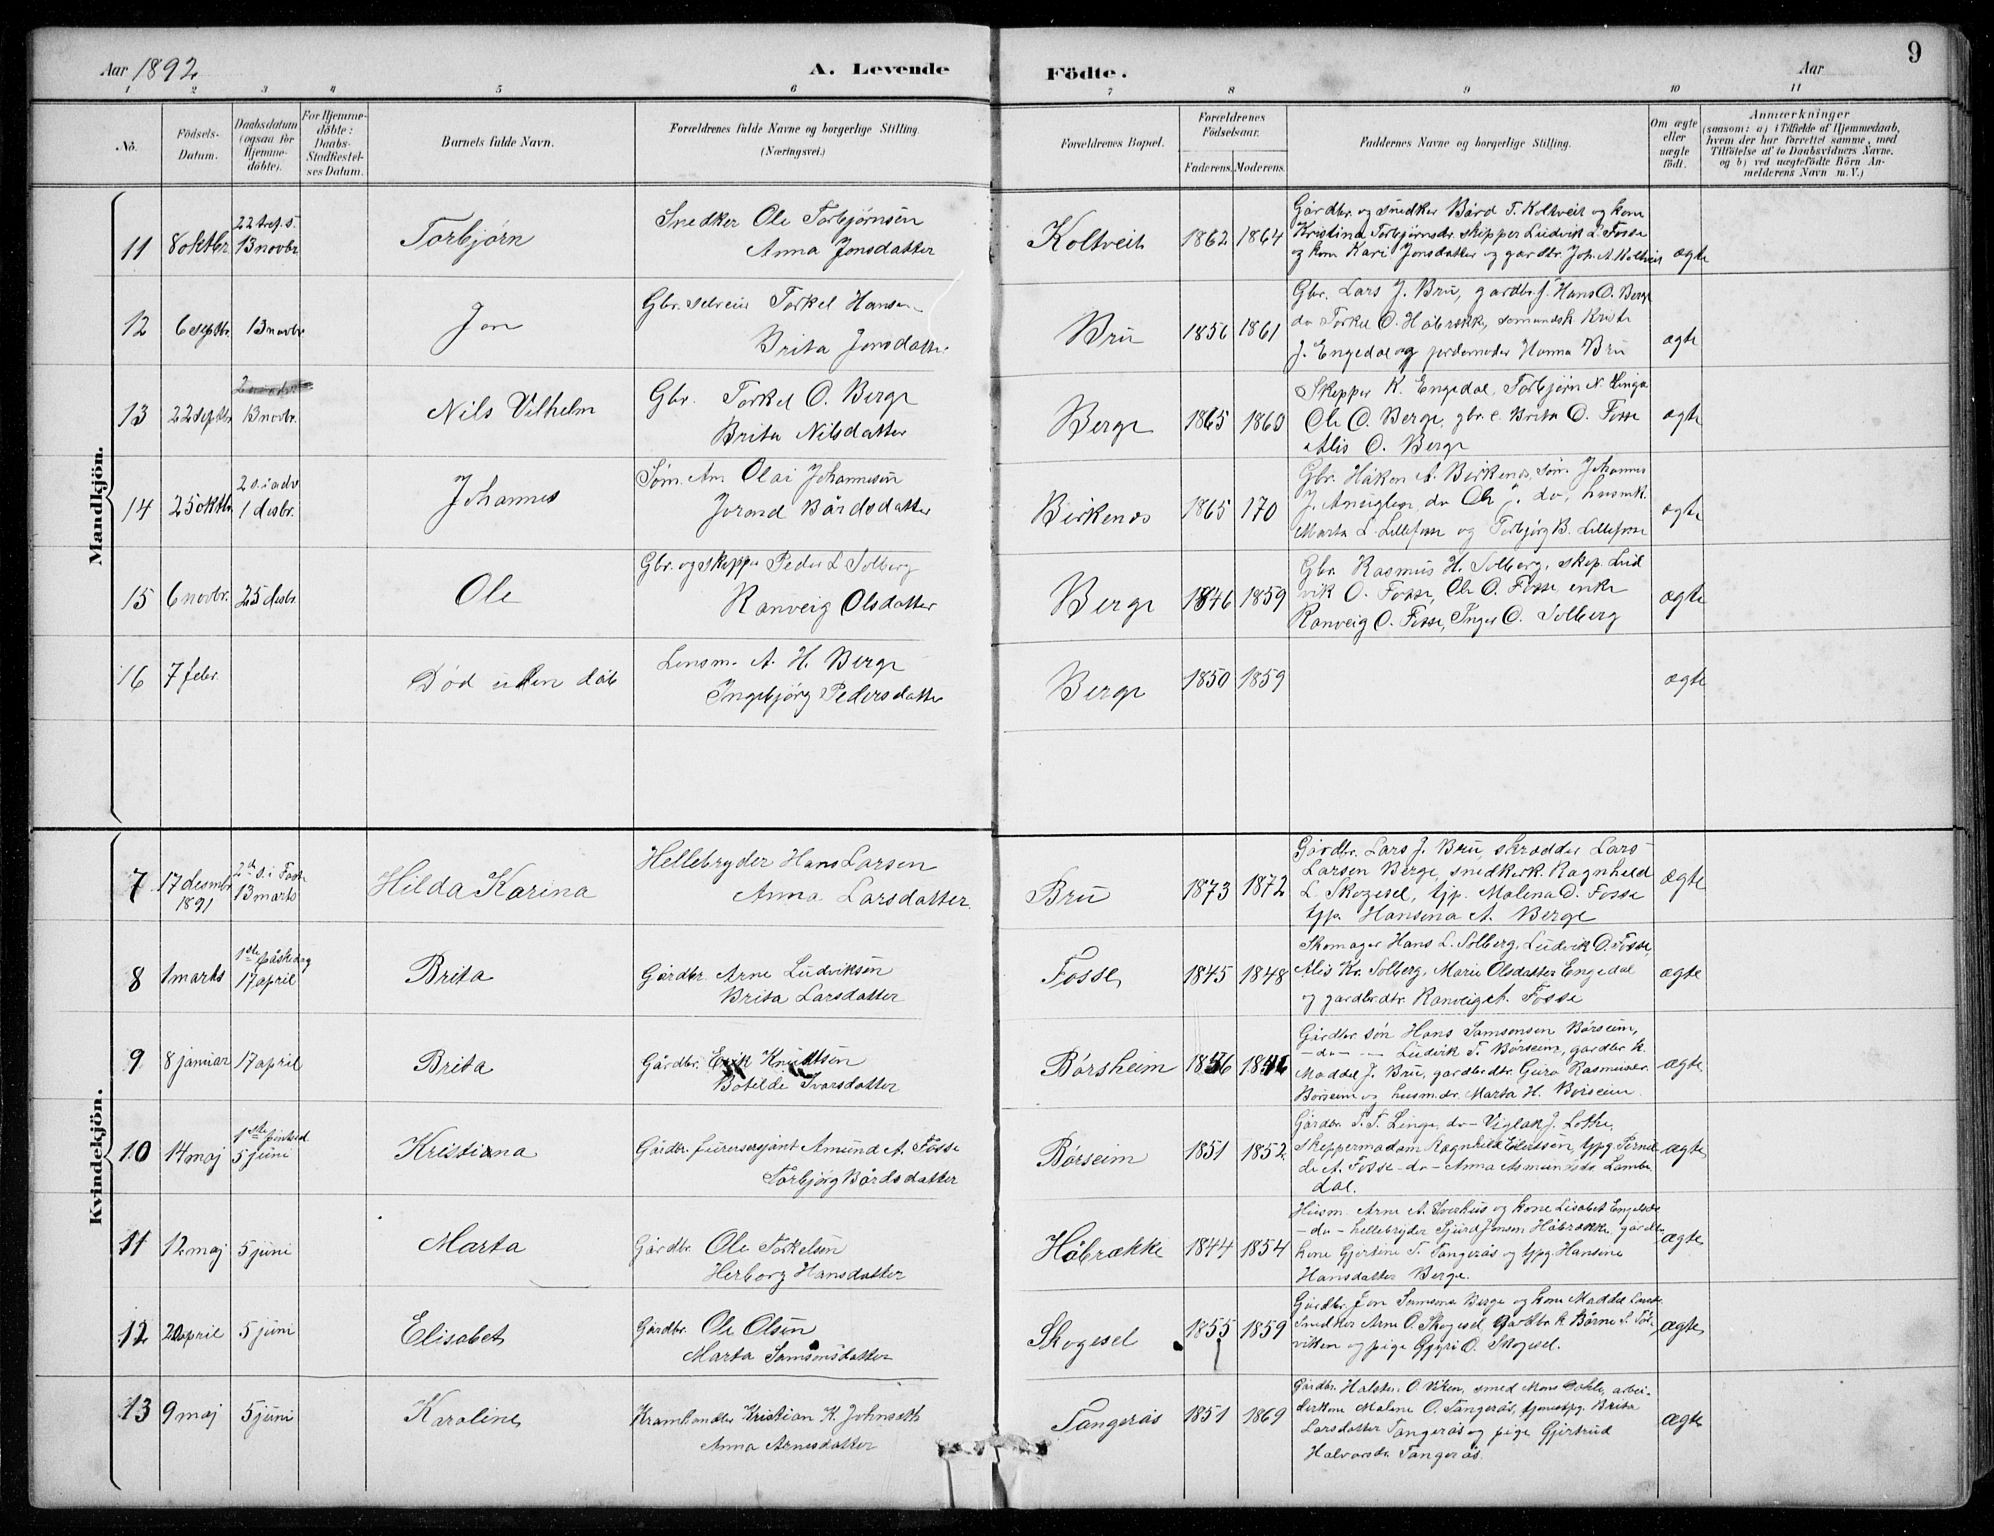 Aar 1892
A. Levende
Födte.
Aar
9
1 2 3 4 5 6 7 8 9 10 11
No.
Födsels-
Datum.
Daabsdatum
(ogsaa for
Hjemme-
döbte).
For Hjemme-
döbte:
Daabs-
Stadfæstel-
ses Datum.
Barnets fulde Navn.
Forældrenes fulde Navne og borgerlige Stilling.
(Næringsvei.)
Forældrenes Bopæl.
Forældrenes
Födselsaar.
Faderens. Moderens.
Faddernes Navne og borgerlige Stilling.
Om ægte
eller
uægte
födt.
Anmærkninger
(saasom: a) i Tilfælde af Hjemmedaab,
hvem der har forrettet samme, med
Tilföielse af to Daabsvidners Navne.
og b) ved uægtefödte Börn An-
melderens Navn m. V.)
Mandkjön.
11 8 oktbr. 22 s. e. 
13 novbr.
Torbjørn
Snedker Ole Torbjørnsen
Anna Jonsdatter
Koltveit 1862 1864
Gårdbr. og snedker Bård T. Koltveit og kone
Kristina Torbjørnsdr. skipper Ludvik L. Fosse
og kone Kari Jonsdatter og gardbr. Joh. A. Koltveit
ægte
12 6 septbr. 13 novbr.
Jon
Gbr. Torkel Hansen
Brita Jonsdatter
Bru 1856 1861
Gbr. Lars J. Bru, gardbr. f. Hans O. Berge
do Torkel O. Håbrekk, 
J. Engedal og Hanna Bru
ægte
13 22 septbr. 13 novbr.
Nils Vilhelm
Gbr. Torkel O. Berge
Brita Nilsdatter
Berge 1865 1860
Skipper K. Engedal, Torbjørn N. Linga
Ole O. Berge, gbr. e. Brita O. Fosse
Alis O. Berge
ægte
14 25 oktbr. 2 s. i adv
1 desbr.
Johannes
Søm. Olai Johannesen
Jorand Bårdsdatter
Birkenes 1865 170
Gbr. Håken A. Birkenes, søn. Johannes
J. do Ole J. do, husmk.
Marta L. Lillefosse og Torbjørg B. Lillefosse
ægte
15 6 novbr. 25 desbr.
Ole
Gbr. og skipper Peder L. Solberg
Ranveig Olsdatter
Berge 1846 1859
Gbr. Rasmus H. Solberg, skip. Lud
vik O. Fosse, Ole O. Fosse, enke
Ranveig O. Fosse, Inger O. Solberg
ægte
16 7 febr.
Død uden dåb
Lensm. A. H. Berge
Ingebjørg Pedersdatter
Berge 1850 1859
ægte
Kvindekjön.
7 17 desmbr.
1891
2d s. i Faste
13 marts
Hilda Karina
Hellebryder Hans Larsen
Anna Larsdatter
Bru 1873 1872
Gårdbr. Lars J. Bru, skrædder Lars
Larsen Berge, snedkerk. Ragnheld
L. Skogesel, tjp. Malena O. Fosse
tjp. Hansina A. Berge
ægte
8 1 marts 1ste påskedag
17 april
Brita
Gårdbr. Arne Ludviksen
Brita Larsdatter
Fosse 1845 1848
Skomager Hans L. Solberg, Ludvik O. Fosse,
Alis Kr. Solberg, Marie Olsdatter Engedal
og gardbrdtr. Ranveig A. Fosse
ægte
9 8 januar 17 april
Brita
Gårdbr. Erik Knudtsen
Botilde Ivarsdatter
Børsheim 1856
Gårdbr søn Hans Samsonsen Børseim,
— do — — Ludvik T. Børseim, gardbr. k.
Maddel J. Bru, gardbrdtr. Guro Rasmusdr.
Børseim og husm.dr. Marta H. Børseim.
ægte
10 14 maj 1ste pintsed
5 juni
Kristiana
Gårdbr. furersersjant Amund A. Fosse
Torbjørg Bårdsdatter
Børseim 1851 1852
Gårdbr. T. T. Linge, do — Viglak J. Lothe,
skippermadam Ragnhild Eilertsen, tjpg. Pernil
le A. Fosse — do — Anna Asmundsdr. Lambe
dal.
ægte
11 12 maj 5 juni
Marta
Gårdbr. Ole Torkelsen
Herborg Hansdatter
Håbrække 1844 1854
Husm. Arne A. Sverhus og kone Lisabet Engelsdr.
— do — hellebryder Sjurd Jonsen Håbrække, gårdbr.
kone Gjertine T. Tangerås og tjpg. Hansine
Hansdatter Berge.
ægte
12 20 april 5 juni
Elisabet
Gårdbr. Ole Olsen
Marta Samsonsdatter
Skogesel 1855 1859
Gårdbr. Jon Berge og kone Maddel
Snedker Arne O. Skogesel Gardbr. k. Børne T. Tol-
vikken og pige O. Skogesel.
ægte
13 9 maj 5 juni
Karoline
Kramhandler Kristian K. Johnseth
Anna Arnesdatter
Tangerås 1851 1869
Gårdbr. Halster O. Viken, smed Mons Dohle, arbei-
derkone Malene O. Tangerås, tjenestpg. Brita
Larsdatter Tangerås og pige Gjertrud
Halvorsdr. Tangerås.
ægte